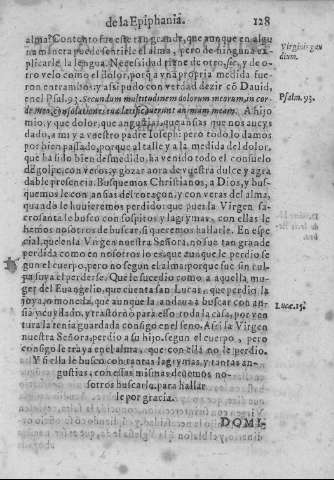 de la Epiphania. 128
alma? Contento fue este tan grande, que aunque en algu
na manera puede sentirle el alma, pero de ninguna ex
plicarle la lengua. Necessidad tiene de otro, sic, y de o-
tro velo como el dolor, porq̃ a vna propria medida fue
ron entrambos: y assi pudo con verdad dezir cõ Dauid,
en el Psal. 93. Secundum multitudinem dolorum meorum, in cor-
de meo, consolationes tuæ lætificauerunt animam meam. A hijo
mio, y que dolor, que angustias, que ansias que nos aueys
dado, a mi y a vuestro padre Ioseph: pero todo lo damos
por bien passado, porque al talle y a la medida del dolor,
que ha sido bien desmedido, ha venido todo el consuelo
de golpe, con veros, y gozar aora de vuestra dulce y agra
dable presencia. Busquemos Christianos, a Dios, y bus-
quemosle con ansias del coraçon, y con veras del alma,
quando le huuieremos perdido: que pues la Virgen sa-
crosanta le busco con sospiros y lagrymas, con ellas le
hemos nosotros de buscar, si queremos hallarle. En espe
cial, que en la Virgen nuestra Señora, no fue tan grande
perdida como en nosotros lo es: que aunque le perdio se
gun el cuerpo, pero no segun el alma: porque fue sin cul-
pa suya el perderse. Que le sucedio como a aquella, mu-
ger del Euangelio, que cuenta san Lucas, que perdio la
joya, o moneda, que aunque la andaua a buscar con an-
sia y cuydado, y trastornò para esso toda la casa, por ven
tura la tenia guardada consigo en el seno. Assi la Virgen
nuestra Señora, perdio a su hijo. segun el cuerpo, pero
consigo le traya en el alma, que con ella no le perdio.
Y si ella le busco con tantas lagrymas, y tantas an-
gustias, con ellas mismas deuemos no-
sotros buscarle, para hallar
le por gracia.
DOMI-
Virginis gau
dium.
Psalm. 93.
Lucæ. 15.